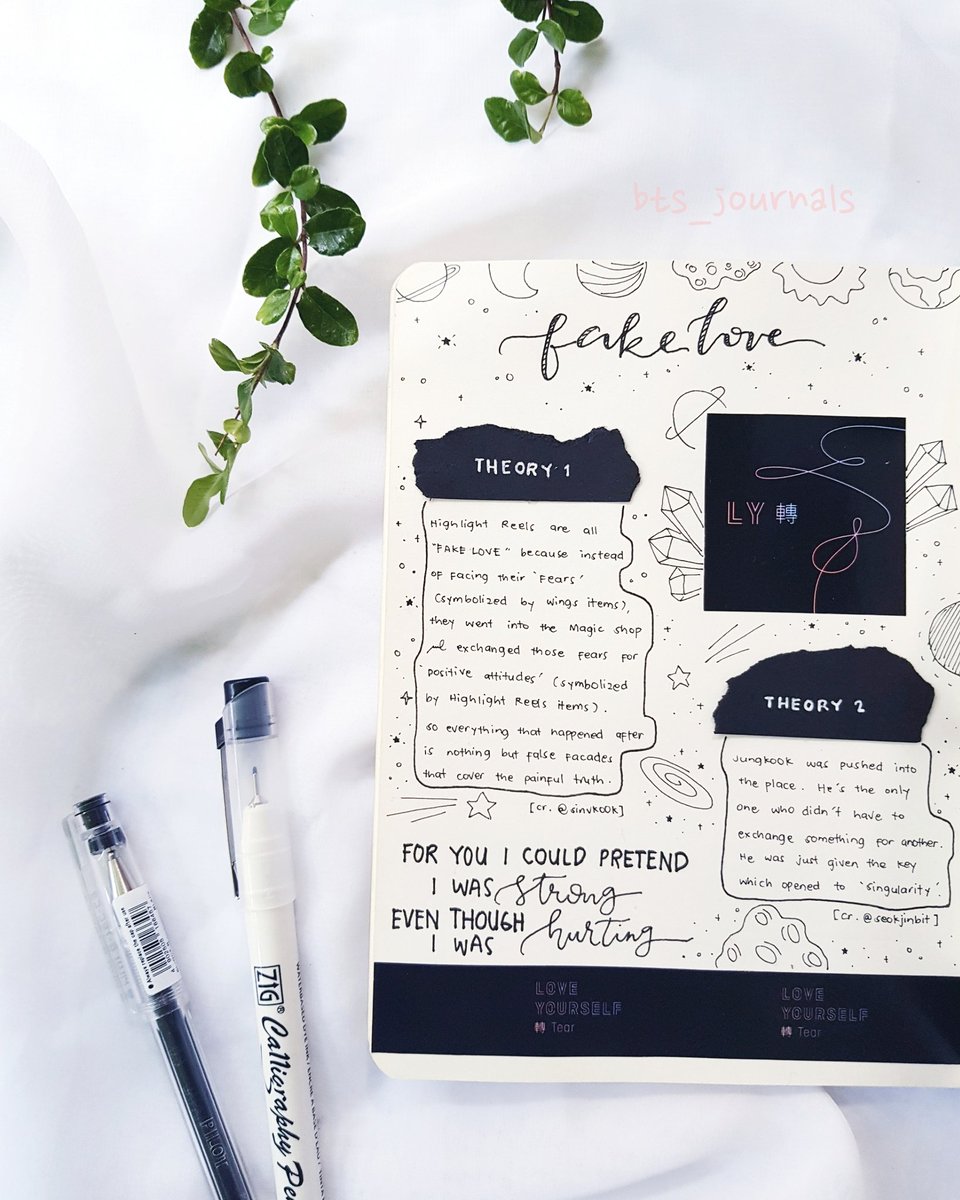 bts_journals
fake love
THEORY 1
Highlight Reels are all
"FAKE LOVE" because instead
of facing their 'Fears'
(symbolized by wings items),
they went into the Magic shop
and exchanged those fears for
'positive attitudes' (symbolized
by Highlight Reels items).
so everything that happened after
is nothing but false facades
that cover the painful truth.
[cr. @sinvkook]
LY 轉
THEORY 2
Jungkook was pushed into
the place. He's the only
one who didn't have to
exchange something for another.
He was just given the key
which opened to 'singularity'.
[cr. @seokjinbit]
FOR YOU I COULD PRETEND
I WAS strong
EVEN THOUGH
I WAS hurting
LOVE
YOURSELF
轉 Tear
LOVE
YOURSELF
轉 Tear
ZIG® Calligraphy Pen
PILOT